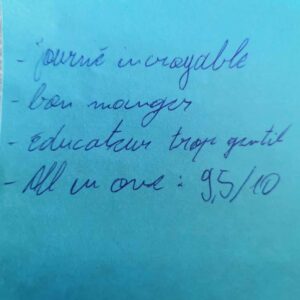 - journé incroyable
- bon manger
- Educateur trop gentil
- All in one : 9,5/10